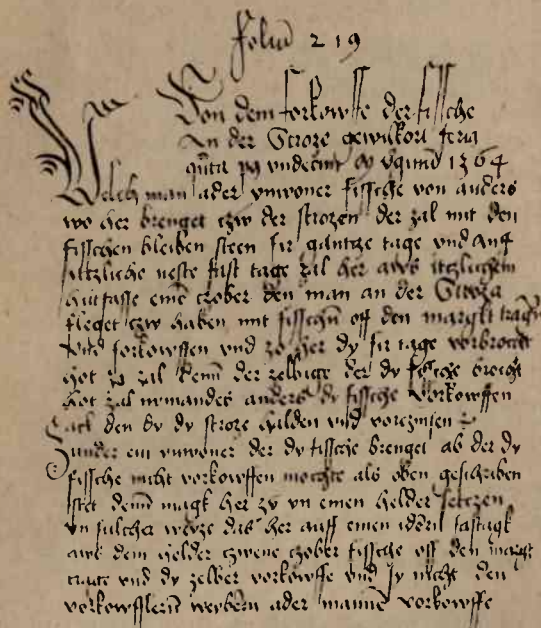 foliū 219
Von dem forkowffe der fissche
An der Stroze gewilkort feria
quīta
Welch man ader ynwoner fissche von anders
wo her brenget czw der strozen der zal mit den
fisschen bleiben steen fir gantze tage vnd auf
itzliche neste fast tage zal her aws itzlichem
hutfasse eine czober den man an der Stroza
pfleget czw haben mit fisschin off den margkt tragn
vnd forkowffen vnd zo her dy fir tage vorbrocht
hot zo zal denn der zelbige der dy fissche breicht
hot zal nymandes anders dy fissche vorkowffen
den dy dy stroze halden vnd vorczinsen
Sunder ein ynwoner der dy fissche brenget ab der dy
fissche nicht vorkowffen mochte als oben geschriben
stet denn magk her zy yn einen helder setczen
yn sulcher weyze das her auff einen idern fastagk
aws dem helder czwene czober fissche off den margt
trage vnd dy zelber vorkowffe vnd sy nicht den
vorkowfflerin weybern ader manne vorkowffe